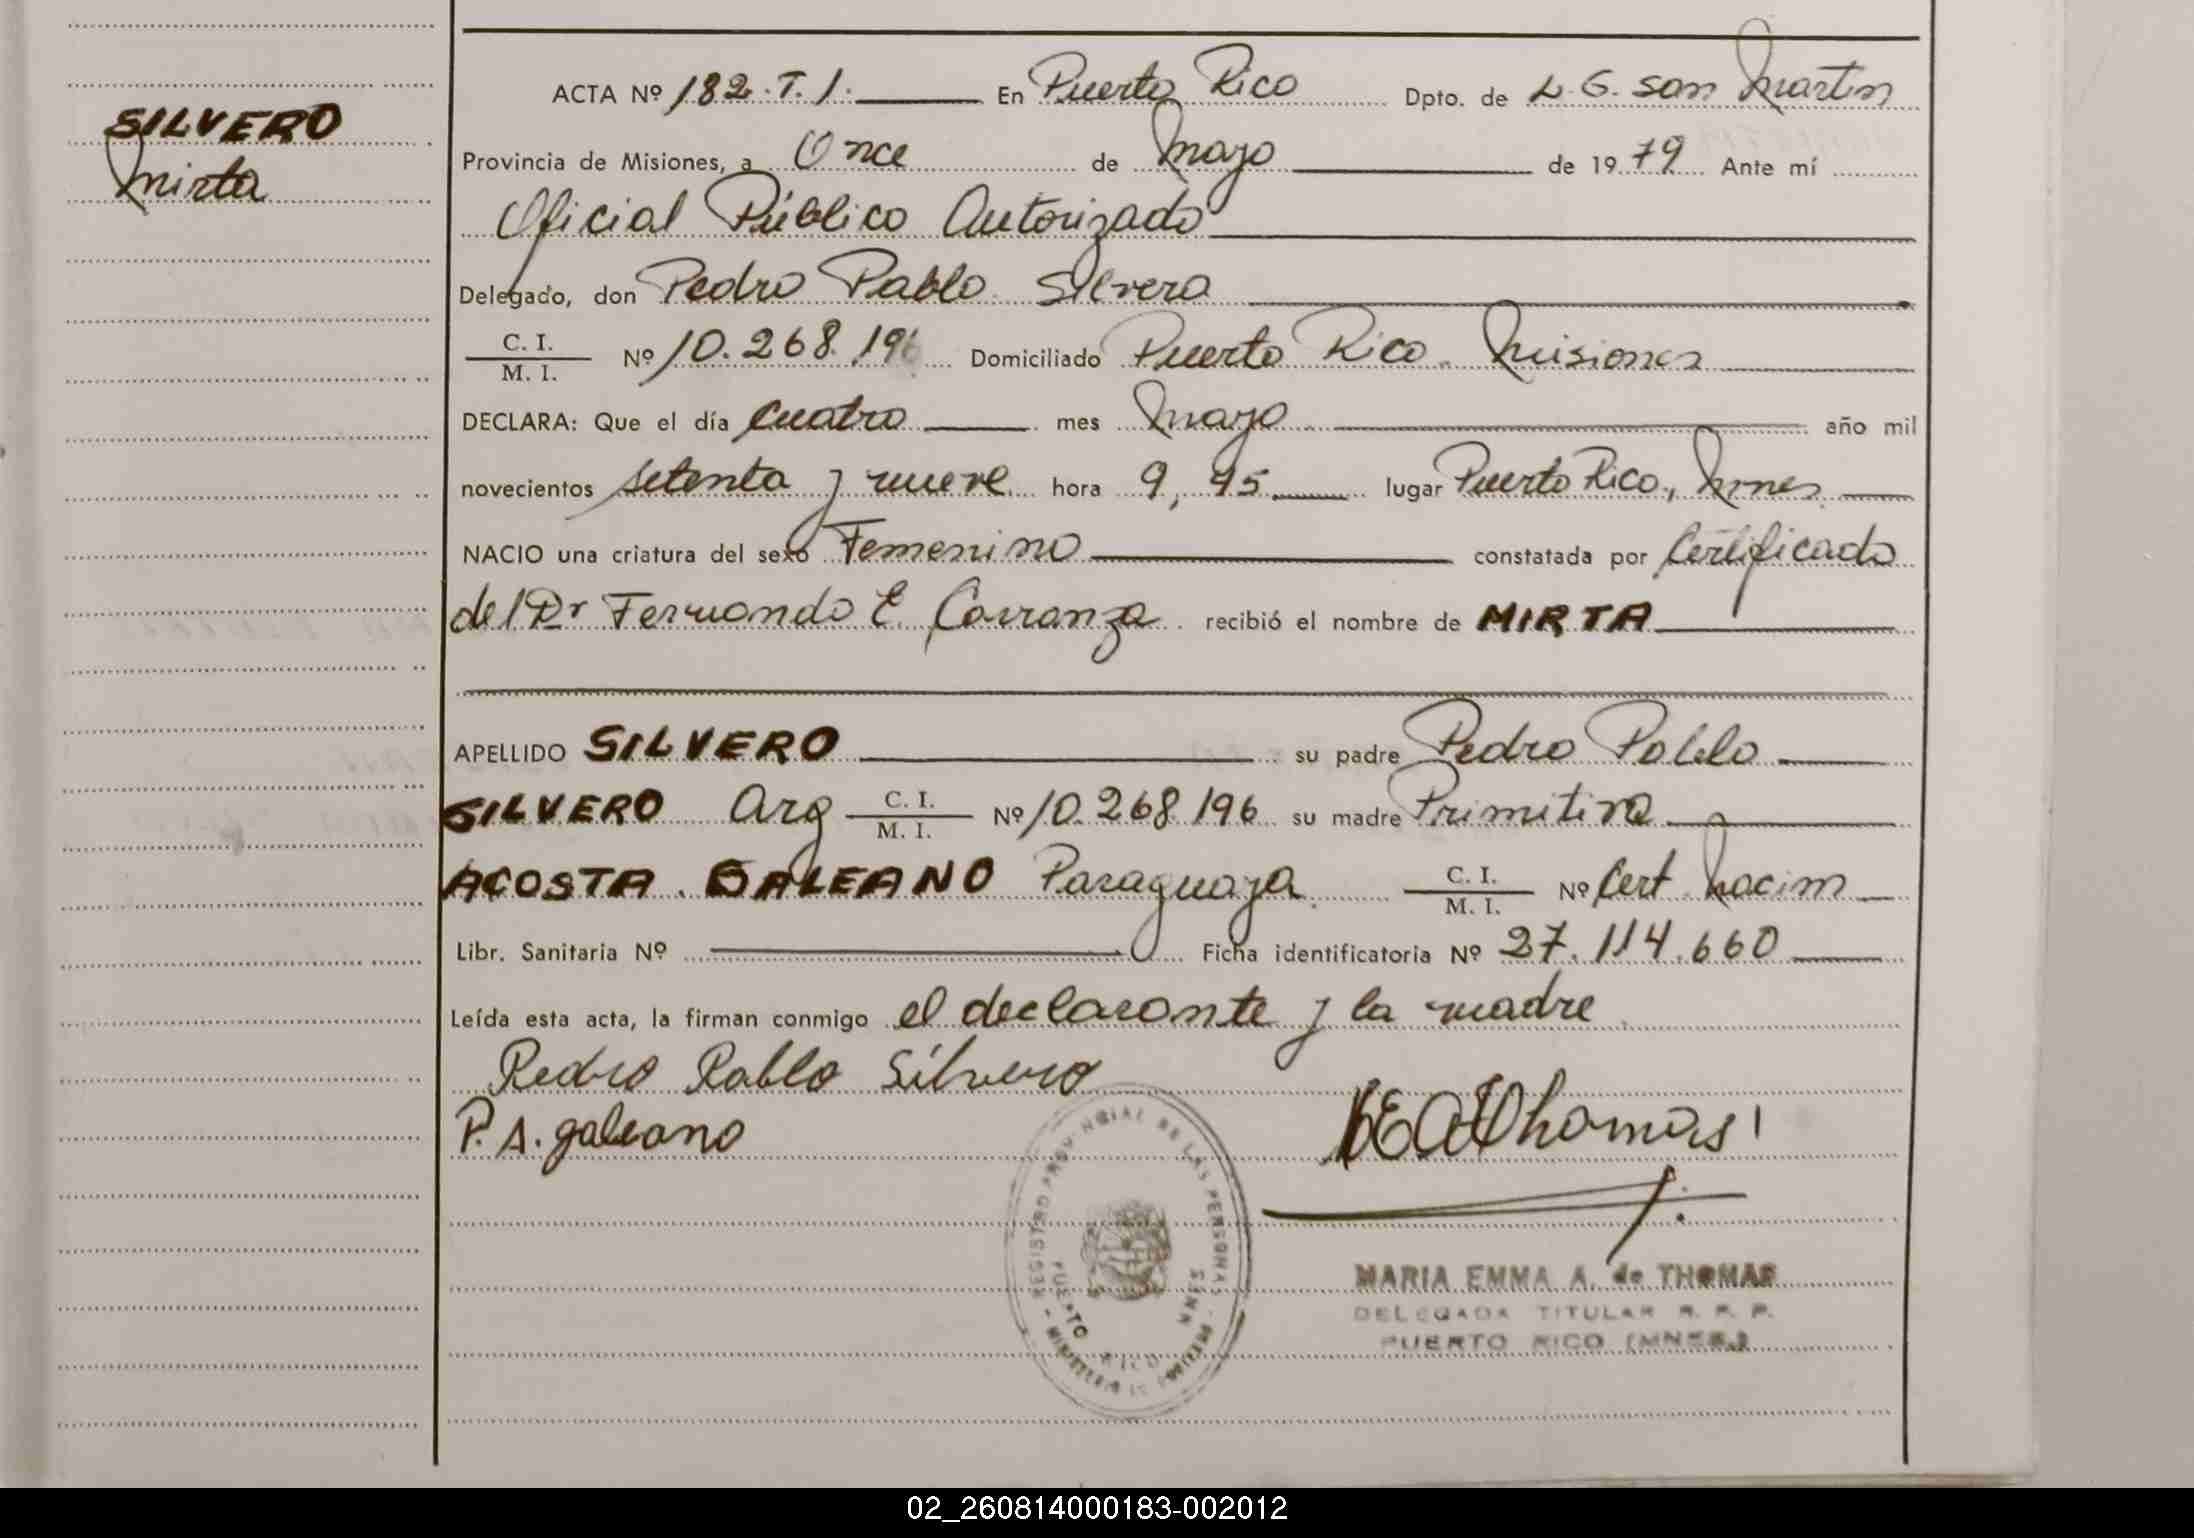 SILVERO
Mirta
ACTA Nº 182.T.1. En Puerto Rico Dpto. de L.G. San Martin
Provincia de Misiones, a Once de Mayo de 1979 Ante mí
Oficial Público Autorizado
Delegado, don Pedro Pablo Silvero
C. I.
M. I. Nº 10.268.196 Domiciliado Puerto Rico. Misiones
DECLARA: Que el día cuatro mes Mayo año mil
novecientos setenta y nueve hora 9,45 lugar Puerto Rico, Mnes
NACIO una criatura del sexo Femenino constatada por Certificado
del Dr Fernando E. Carranza recibió el nombre de MIRTA
APELLIDO SILVERO su padre Pedro Pablo
SILVERO Arg C. I. M. I. Nº 10.268.196 su madre Primitiva
ACOSTA. GALEANO Paraguaya. C. I. M. I. Nº Cert Nacim
Libr. Sanitaria Nº Ficha identificatoria Nº 27.114.660
Leída esta acta, la firman conmigo el declarante y la madre.
Pedro Pablo Silvero
P. A. galeano
Thomas
REGISTRO PROVINCIAL DE LAS PERSONAS
PUERTO RICO
MNES
MARIA EMMA A. de THOMAS
DELEGADA TITULAR R. P. P.
PUERTO RICO (MNES.)
02_260814000183-002012